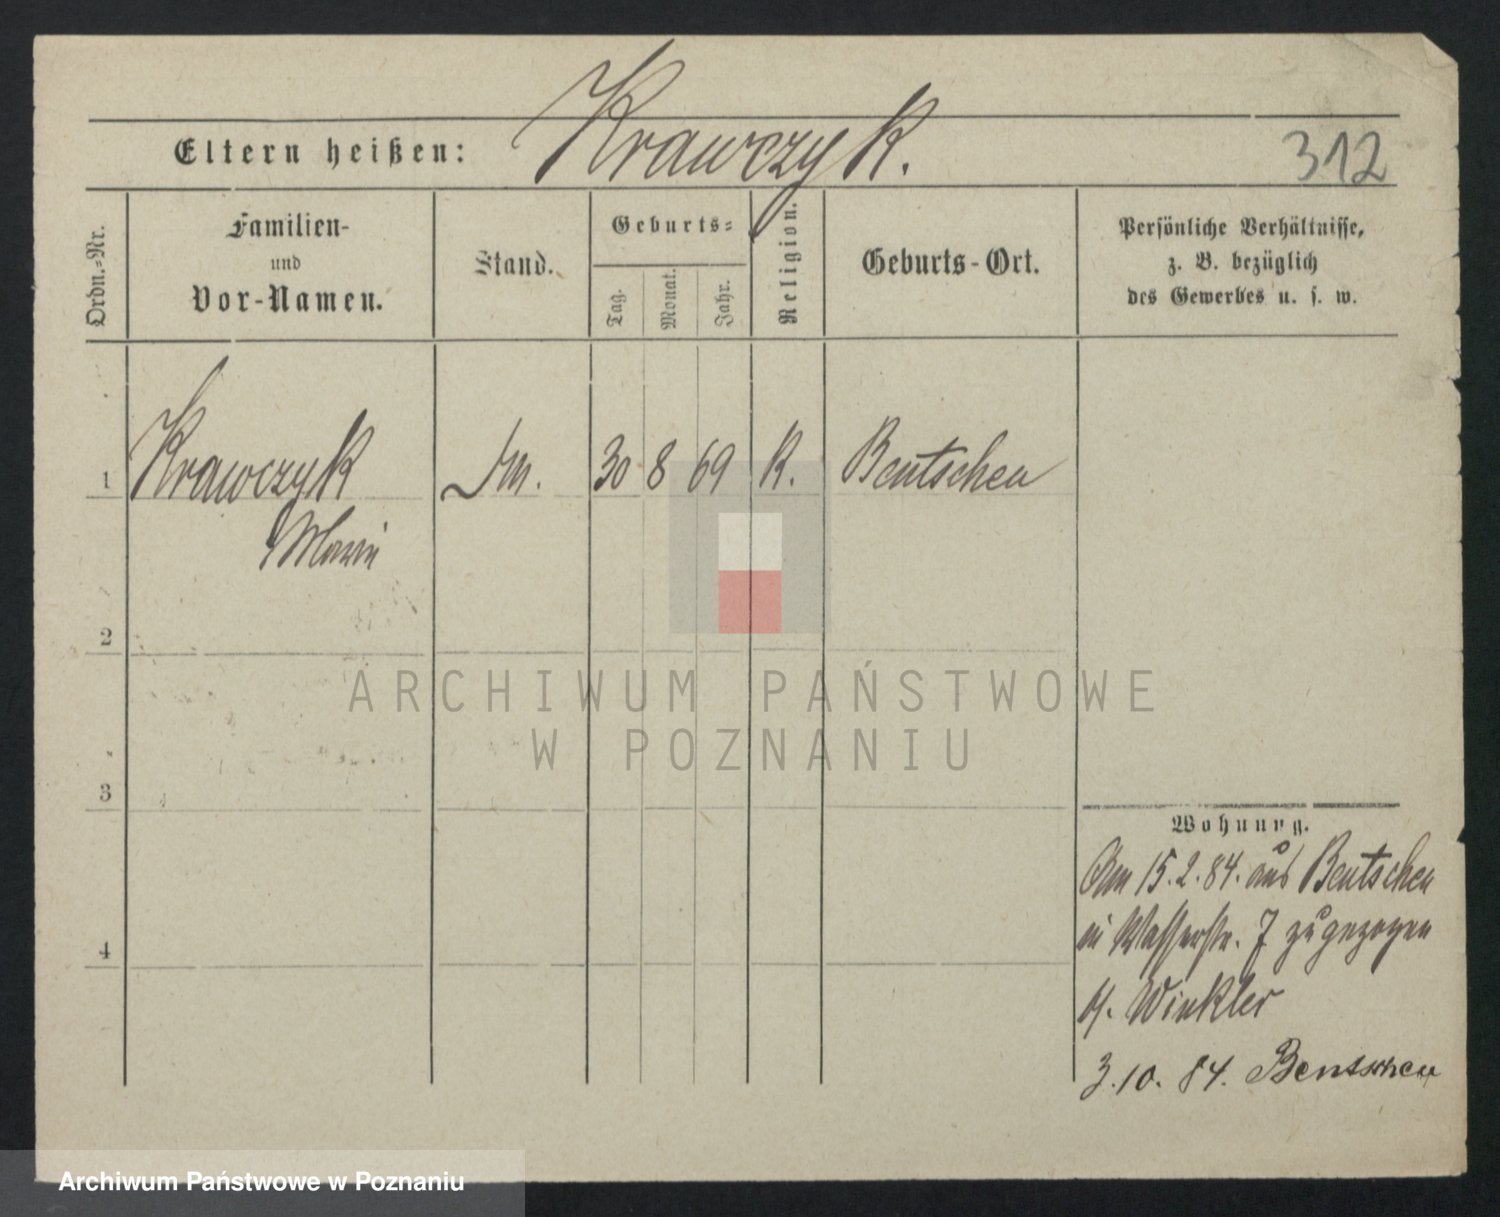 Krawczyk.
Eltern heißen:
312
Ordn.-Nr.
Familien-
und
Vor-Namen.
Stand.
Geburts-
Tag.
Monat.
Jahr.
Religion.
Geburts-Ort.
Persönliche Verhältnisse,
z. B. bezüglich
des Gewerbes u. s. w.
1 Krawczyk 30 8 69 K. Bentschen
Marie
2
ARCHIWUM PAŃSTWOWE
W POZNANIU
3
Wohnung.
Am 15.2.84. aus Bentschen
in Wasserstr. 7 zugezogen
b. Winkler
4
3.10.84. Bentschen
Archiwum Państwowe w Poznaniu